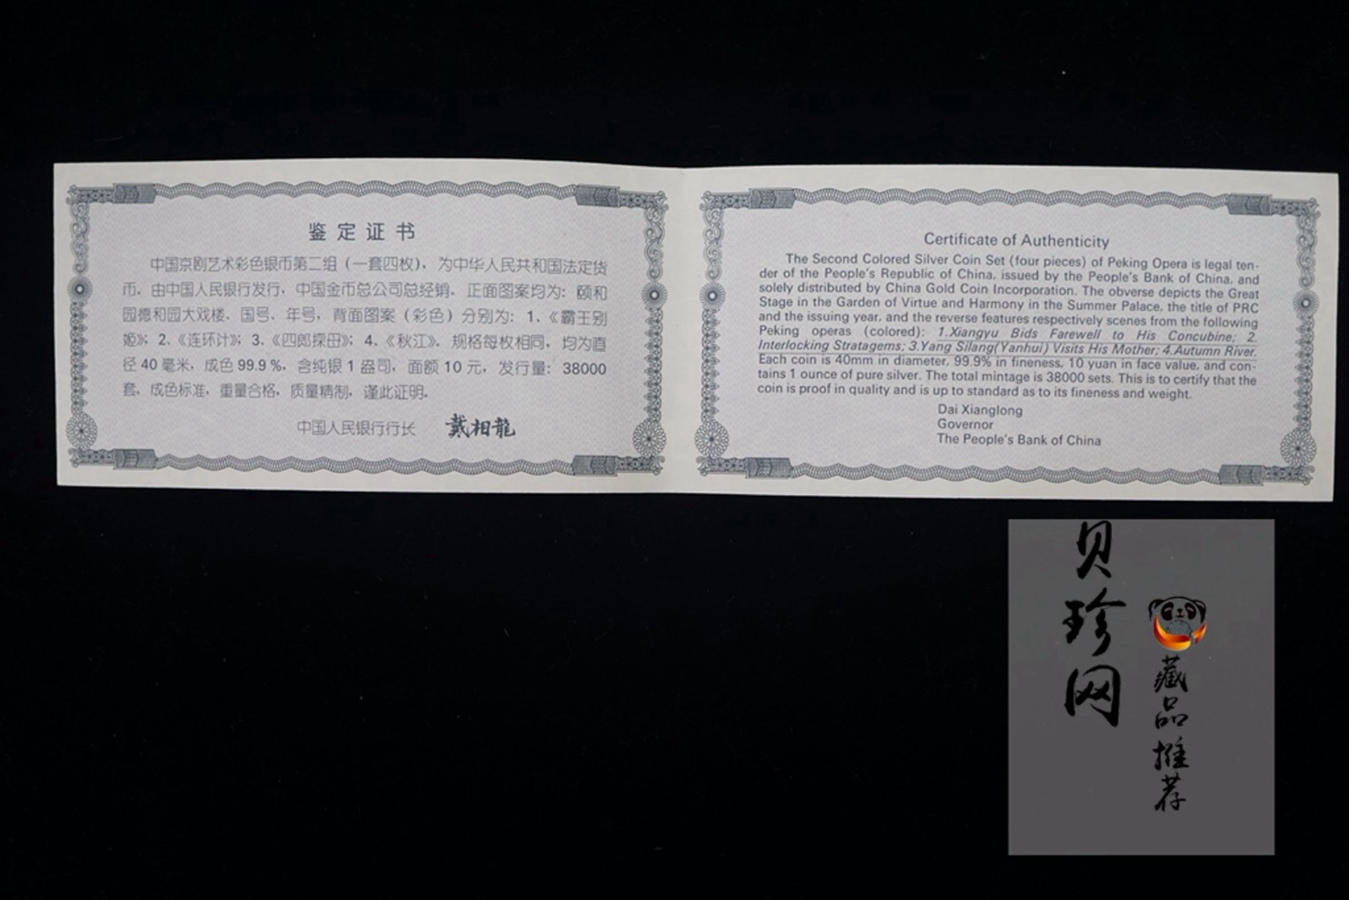 鉴定证书
中国京剧艺术彩色银币第二组（一套四枚），为中华人民共和国法定货
币，由中国人民银行发行，中国金币总公司总经销。正面图案均为：颐和
园德和园大戏楼、国号、年号，背面图案（彩色）分别为：1、《霸王别
姬》；2、《连环计》；3、《四郎探母》；4、《秋江》。规格每枚相同，均为直
径40毫米，成色99.9%，含纯银1盎司，面额10元，发行量：38000
套，成色标准，重量合格，质量精制，谨此证明。
中国人民银行行长 戴相龍
Certificate of Authenticity
The Second Colored Silver Coin Set (four pieces) of Peking Opera is legal ten-
der of the People's Republic of China, issued by the People's Bank of China, and
solely distributed by China Gold Coin Incorporation. The obverse depicts the Great
Stage in the Garden of Virtue and Harmony in the Summer Palace, the title of PRC
and the issuing year, and the reverse features respectively scenes from the following
Peking operas (colored): 1.Xiangyu Bids Farewell to His Concubine; 2.
Interlocking Stratagems; 3.Yang Silang(Yanhui) Visits His Mother; 4.Autumn River.
Each coin is 40mm in diameter, 99.9% in fineness, 10 yuan in face value, and con-
tains 1 ounce of pure silver. The total mintage is 38000 sets. This is to certify that the
coin is proof in quality and is up to standard as to its fineness and weight.
Dai Xianglong
Governor
The People's Bank of China
贝珍网
藏品推荐